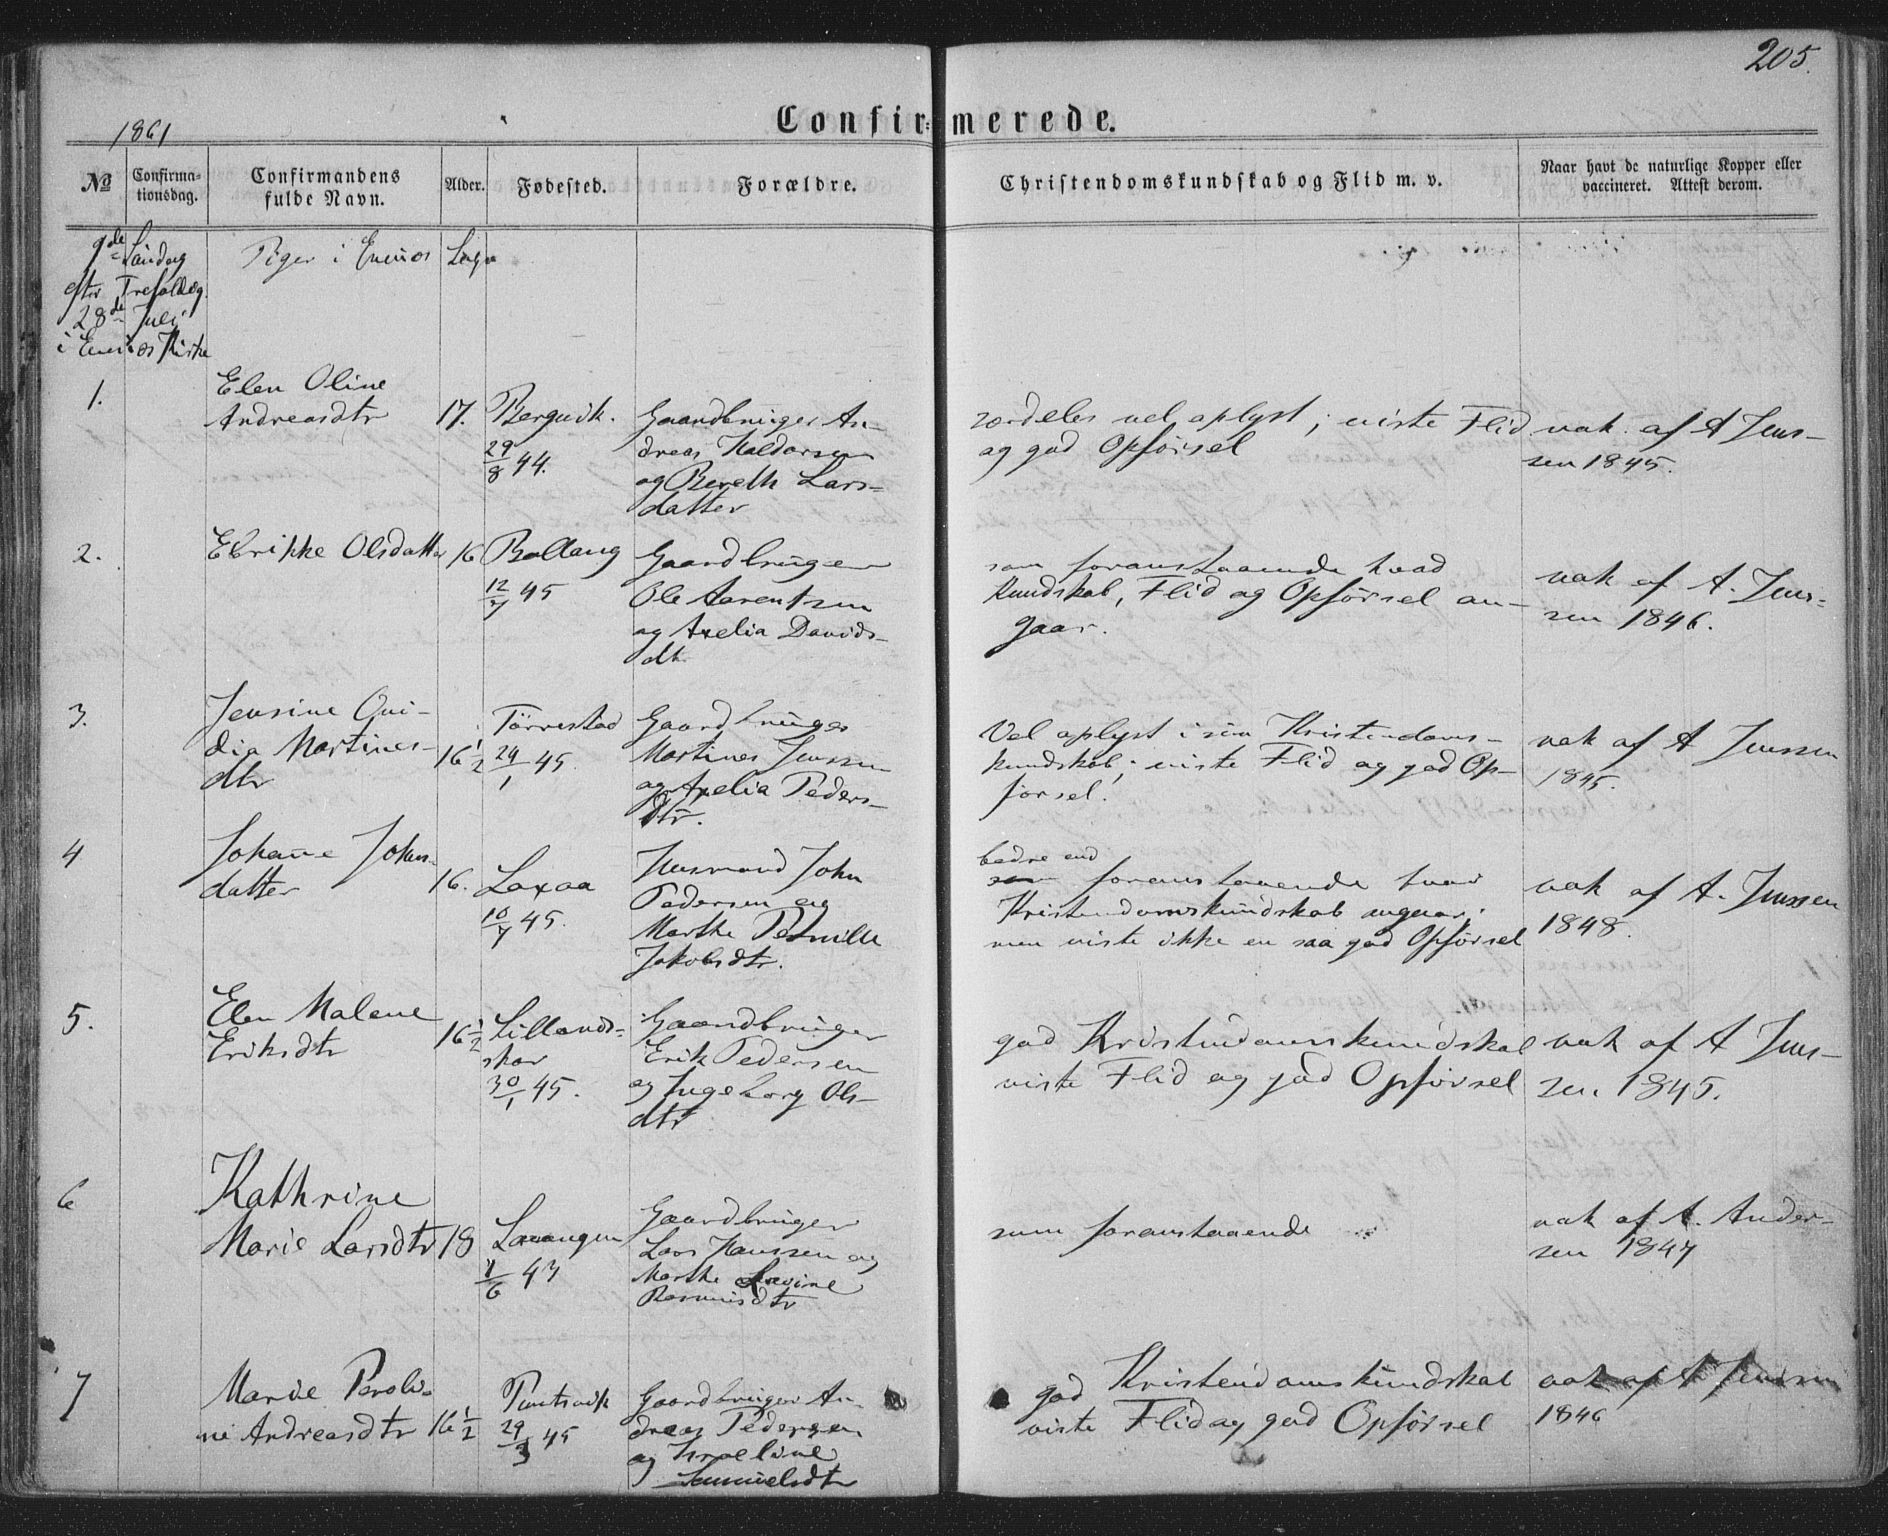 205.
Confir=merede.
1861
No
Confirma-
tionsdag.
Confirmandens
fulde Navn.
Alder.
Fødested.
Forældre.
Christendomskundskab og Flid m. v.
Naar havt de naturlige Kopper eller
vaccineret. Attest derom.
9de Søndag
efter Trefoldig.
28de Juli
i Evenæs Kirke
Piger i Evenæs Sogn
1.
Elen Oline
Andreasdtr
17.
Bergvik.
29/8 44.
Gaardbruger An-
dreas Haldorsen
og Bereth Lars-
datter
særdeles vel oplyst; viste Flid
og god Opførsel
vak. af A Jens-
sen 1845.
2.
Ebrikke Olsdatter
16
Ballang
12/7 45
Gaardbruger
Ole Aarentsen
og Axelia Davids-
dtr
som foranstaaende hvad
Kundskab, Flid og Opførsel an-
gaar.
vak af A. Jens-
sen 1846.
3.
Jensine Ovi-
dia Martines-
dtr
16 1/2
Tørrestad
29/1 45.
Gaardbruger
Martines Jenssen
og Axelia Peders-
dtr.
Vel oplyst i sin Kristendoms-
kundskab; viste Flid og god Op-
førsel.
vak af A Jenssen
1845.
4
Johanne Johns-
datter
16.
Laxaa
10/7 45.
Husmand John
Pedersen og
Marthe Pernille
Jakobsdtr.
bedre end
som foranstaaende hvad
Kristendomskundskab angaar;
men viste ikke en saa god Opførsel
vak af A. Jenssen
1848.
5.
Elen Malene
Eriksdtr
16 1/2
Lillands-
skar
30/1 45.
Gaardbruger
Erik Pedersen
og Ingeborg Ols-
dtr
god Kristendomskundskab
viste Flid og god Opførsel
vak af A Jens-
sen 1845.
6
Kathrine
Marie Larsdtr
18
Lavangen
1/6 43
Gaardbruger
Lars Hanssen og
Marthe Lovine
Rasmusdtr
som foranstaaende
vak af A. Ander-
sen 1847
7
Marie Peroli-
ne Andreasdtr
16 1/2
Puntsvik
29/3 45
Gaardbruger An-
dreas Pedersen
og Israeline
Samuelsdtr
god Kristendomskundskab
viste Flid og god Opførsel
vak af A Jenssen
1846